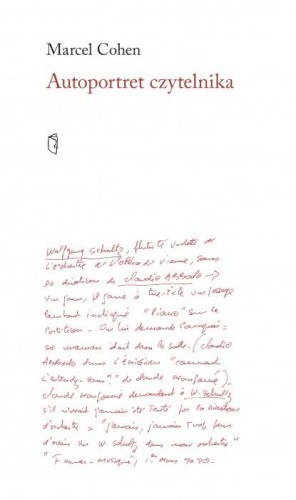 Marcel Cohen
Autoportret czytelnika
Wolfgang Schultz, flûtiste vedette de
l'orchestre de l'Opéra de Vienne, sous
la direction de Claudio Abbado →
un jour, il joue à tue-tête un passage
pourtant indiqué "Piano" sur la
partition - On lui demande pourquoi =
sa maman était dans la salle. (Claudio
Abbado dans l'émission "comment
l'entendez-vous?" de Claude Maupomé).
Claude Maupomé demandant à W. Schultz
s'il n'avait jamais été tenté par la direction
d'orchestre = "jamais, jamais. Trop peur
d'avoir un W. Schultz dans mon orchestre."
"France-musique",